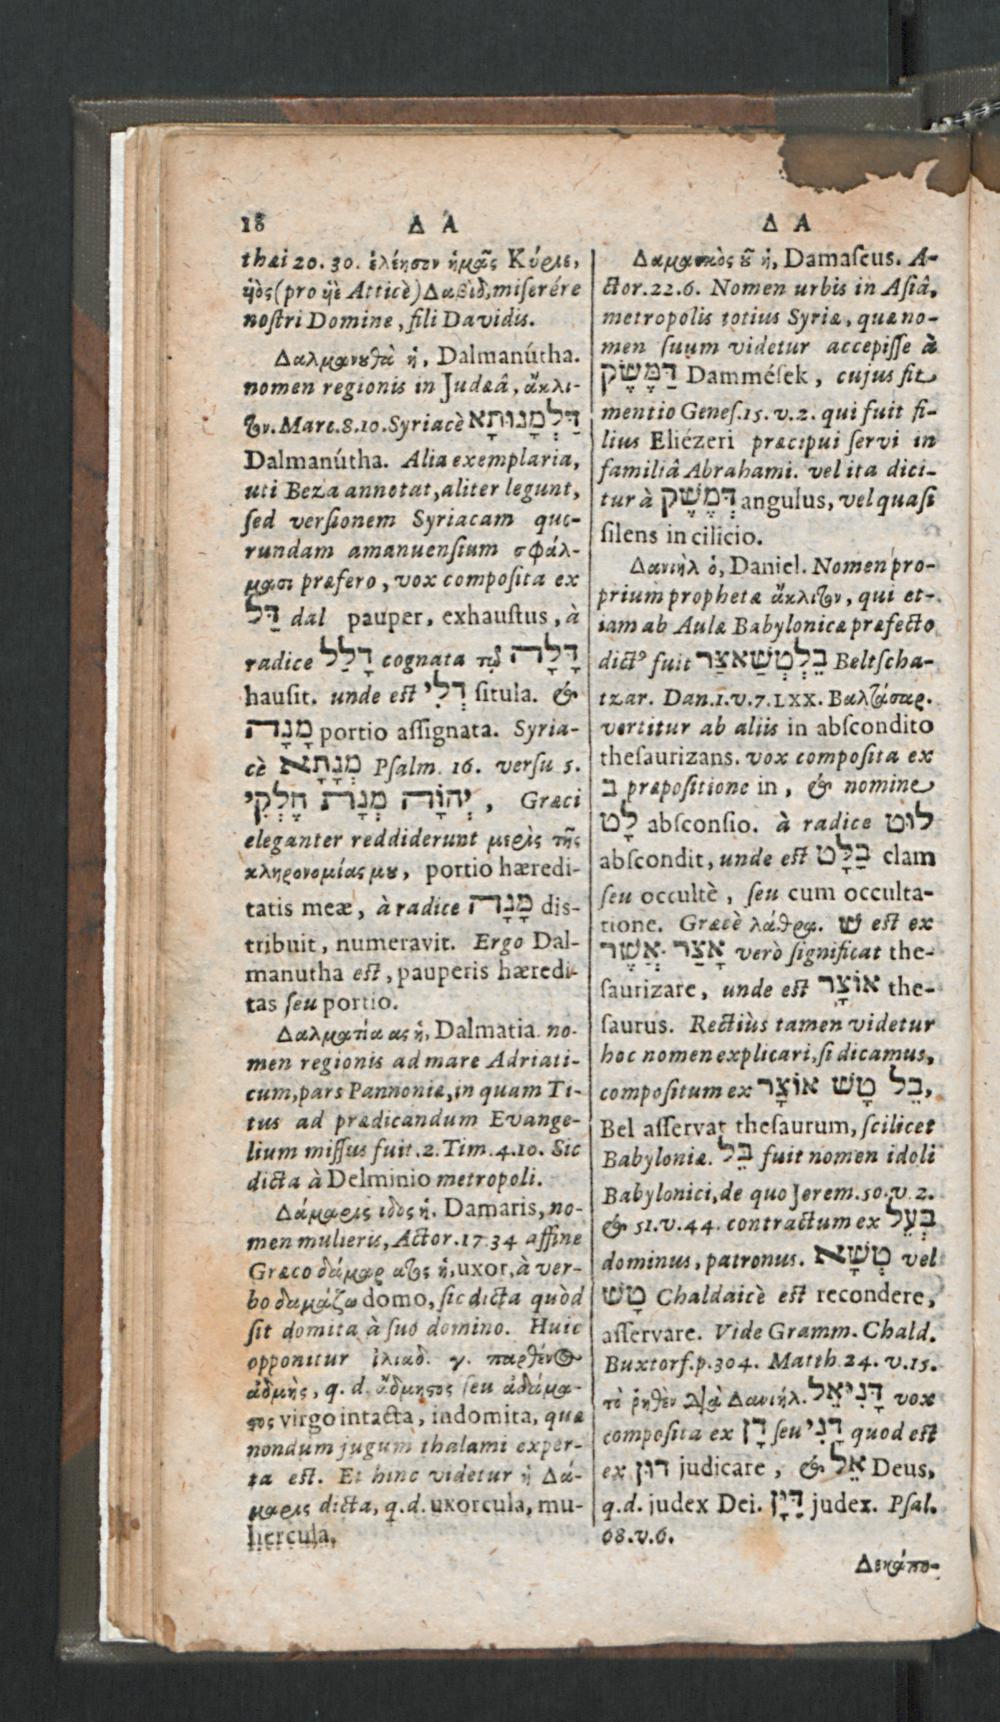 18 Δ Α
thæi 20. 30. ἐλέησον ἡμᾶς Κύριε,
ὑιὸς (pro ὑιὲ Atticè) Δαβὶδ, miserére
nostri Domine, fili Davidis.
Δαλμανουθὰ ἡ, Dalmanútha.
nomen regionis in Judæâ, ἄκλι-
τον. Marc. 8.10. Syriacè דַּלְמָנוּתָא
Dalmanútha. Alia exemplaria,
uti Beza annotat, aliter legunt,
sed versionem Syriacam quo-
rundam amanuensium σφάλ-
μασι præfero, vox composita ex
דַּל dal pauper, exhaustus, à
radice דָּלַל cognata τῷ דָּלָה
hausit. unde est דְּלִי situla. &
מָנָה portio assignata. Syria-
cè מְנָתָא Psalm. 16. versu 5.
יְהוָֹה מְנָת חֶלְקִי, Græci
eleganter reddiderunt μερὶς τῆς
κληρονομίας μου, portio hæredi-
tatis meæ, à radice מָנָה dis-
tribuit, numeravit. Ergo Dal-
manutha est, pauperis hæredi-
tas seu portio.
Δαλματία ας ἡ, Dalmatia. no-
men regionis ad mare Adriati-
cum, pars Pannoniæ, in quam Ti-
tus ad prædicandum Evange-
lium missus fuit. 2. Tim. 4.10. Sic
dicta à Delminio metropoli.
Δάμαρις ιδος ἡ. Damaris, no-
men mulieris, Actor. 17 34 affine
Græco δάμαρ ατος ἡ, uxor, à ver-
bo δαμάζω domo, sic dicta quòd
sit domita à suo domino. Huic
opponitur ἰλιαδ. γ. παρθένος
ἀδμὴς, q. d. ἄδμητος seu ἀδάμα-
τος virgo intacta, indomita, quæ
nondum jugum thalami exper-
ta est. Et hinc videtur ἡ Δά-
μαρις dicta, q.d. uxorcula, mu-
liercula.
Δ Α
Δαμασκὸς οῦ ἡ, Damascus. A-
ctor. 22.6. Nomen urbis in Asiâ,
metropolis totius Syriæ, quæ no-
men suum videtur accepisse à
דַּמֶּשֶׂק Dammések, cujus fit
mentio Genes. 15. v. 2. qui fuit fi-
lius Eliézeri præcipui servi in
familiâ Abrahami. vel ita dici-
tur à דְּמֶשֶׁק angulus, vel quasi
silens in cilicio.
Δανιὴλ ὁ, Daniel. Nomen pro-
prium prophetæ ἄκλιτον, qui et-
iam ab Aulæ Babylonicæ præfecto
dictꝰ fuit בֵּלְטְשַׁאצַּר Beltscha-
tzar. Dan. 1. v. 7. LXX. Βαλτάσαρ.
vertitur ab aliis in abscondito
thesaurizans. vox composita ex
ב præpositione in, & nomine
לָט absconsio. à radice לוּט
abscondit, unde est בַּלָּט clam
seu occultè, seu cum occulta-
tione. Græcè λάθρᾳ. שׁ est ex
אֲשֶׁר. אָצַר verò significat the-
saurizare, unde est אוֹצָר the-
saurus. Rectiùs tamen videtur
hoc nomen explicari, si dicamus,
compositum ex בֵּל טָשׁ אוֹצָר,
Bel asservat thesaurum, scilicet
Babyloniæ. בֵּל fuit nomen idoli
Babylonici, de quo Jerem. 50. v. 2.
& 51. v. 44. contractum ex בְּעֵל
dominus, patronus. טְשָׁא vel
טָשׁ Chaldaicè est recondere,
asservare. Vide Gramm. Chald.
Buxtorf. p. 304. Matth. 24. v. 15.
τὸ ῥηθὲν διὰ Δανιήλ. דָּנִיֵּאל vox
composita ex דָּן seu דָּנִי quod est
ex דּוּן judicare, & אֵל Deus,
q.d. judex Dei. דַּיָּן judex. Psal.
68. v. 6.
Δεκάπο-